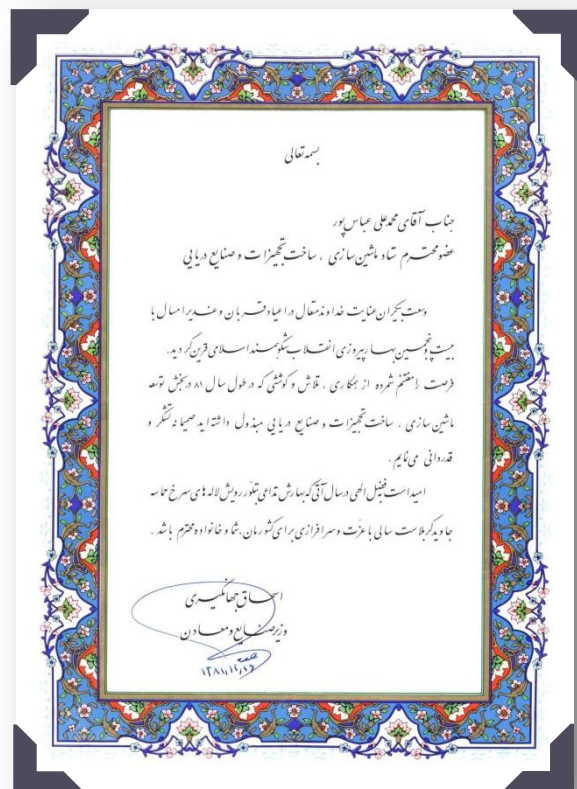 بسمه تعالی
جناب آقای محمدعلی عباس پور
عضو محترم ستاد ماشین سازی ، ساخت تجهیزات و صنایع دریایی
وسعت بیکران عنایت خداوند متعال در اعیاد قربان و غدیر امسال با
بیست و پنجمین بهار پیروزی انقلاب شکوهمند اسلامی قرین گردید.
فرصت را مغتنم شمرده از همکاری ، تلاش و کوششی که در طول سال ۸۱ در بخش توسعه
ماشین سازی ، ساخت تجهیزات و صنایع دریایی مبذول داشته اید صمیمانه تشکر و
قدردانی می نمایم .
امید است بفضل الهی در سال آتی که بهارش تداعی تبلور رویش لاله های سرخ حماسه
جاوید کربلاست سالی با عزت و سرافرازی برای کشورمان، شما و خانواده محترم باشد .
اسحاق جهانگیری
وزیر صنایع و معادن
۱۳۸۱,۱۲,۲۶